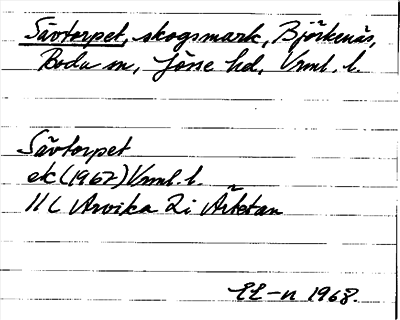 Sävtorpet, skogsmark, Björkenäs,
Boda sn, Jösse hd, Vrml. l.
Sävtorpet
ek (1967) Vrml. l.
11 C Arvika 2i Årketan
EL-n 1968.